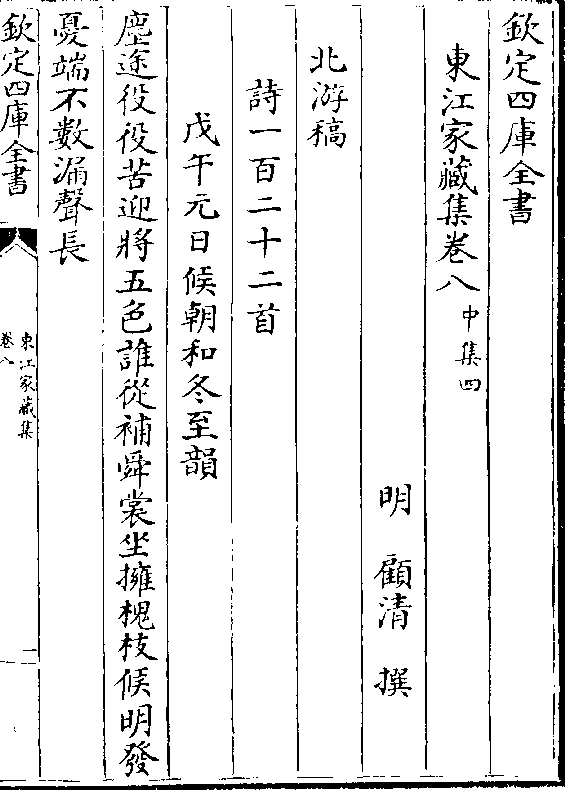 欽定四庫全書
東江家藏集卷八 中集四
明 顧清 撰
北游稿
詩一百二十二首
戊午元日候朝和冬至韻
塵途役役苦迎將五色誰從補舜裳坐擁槐枝候明發
憂端不數漏聲長
欽定四庫全書
東江家藏集
卷八
一